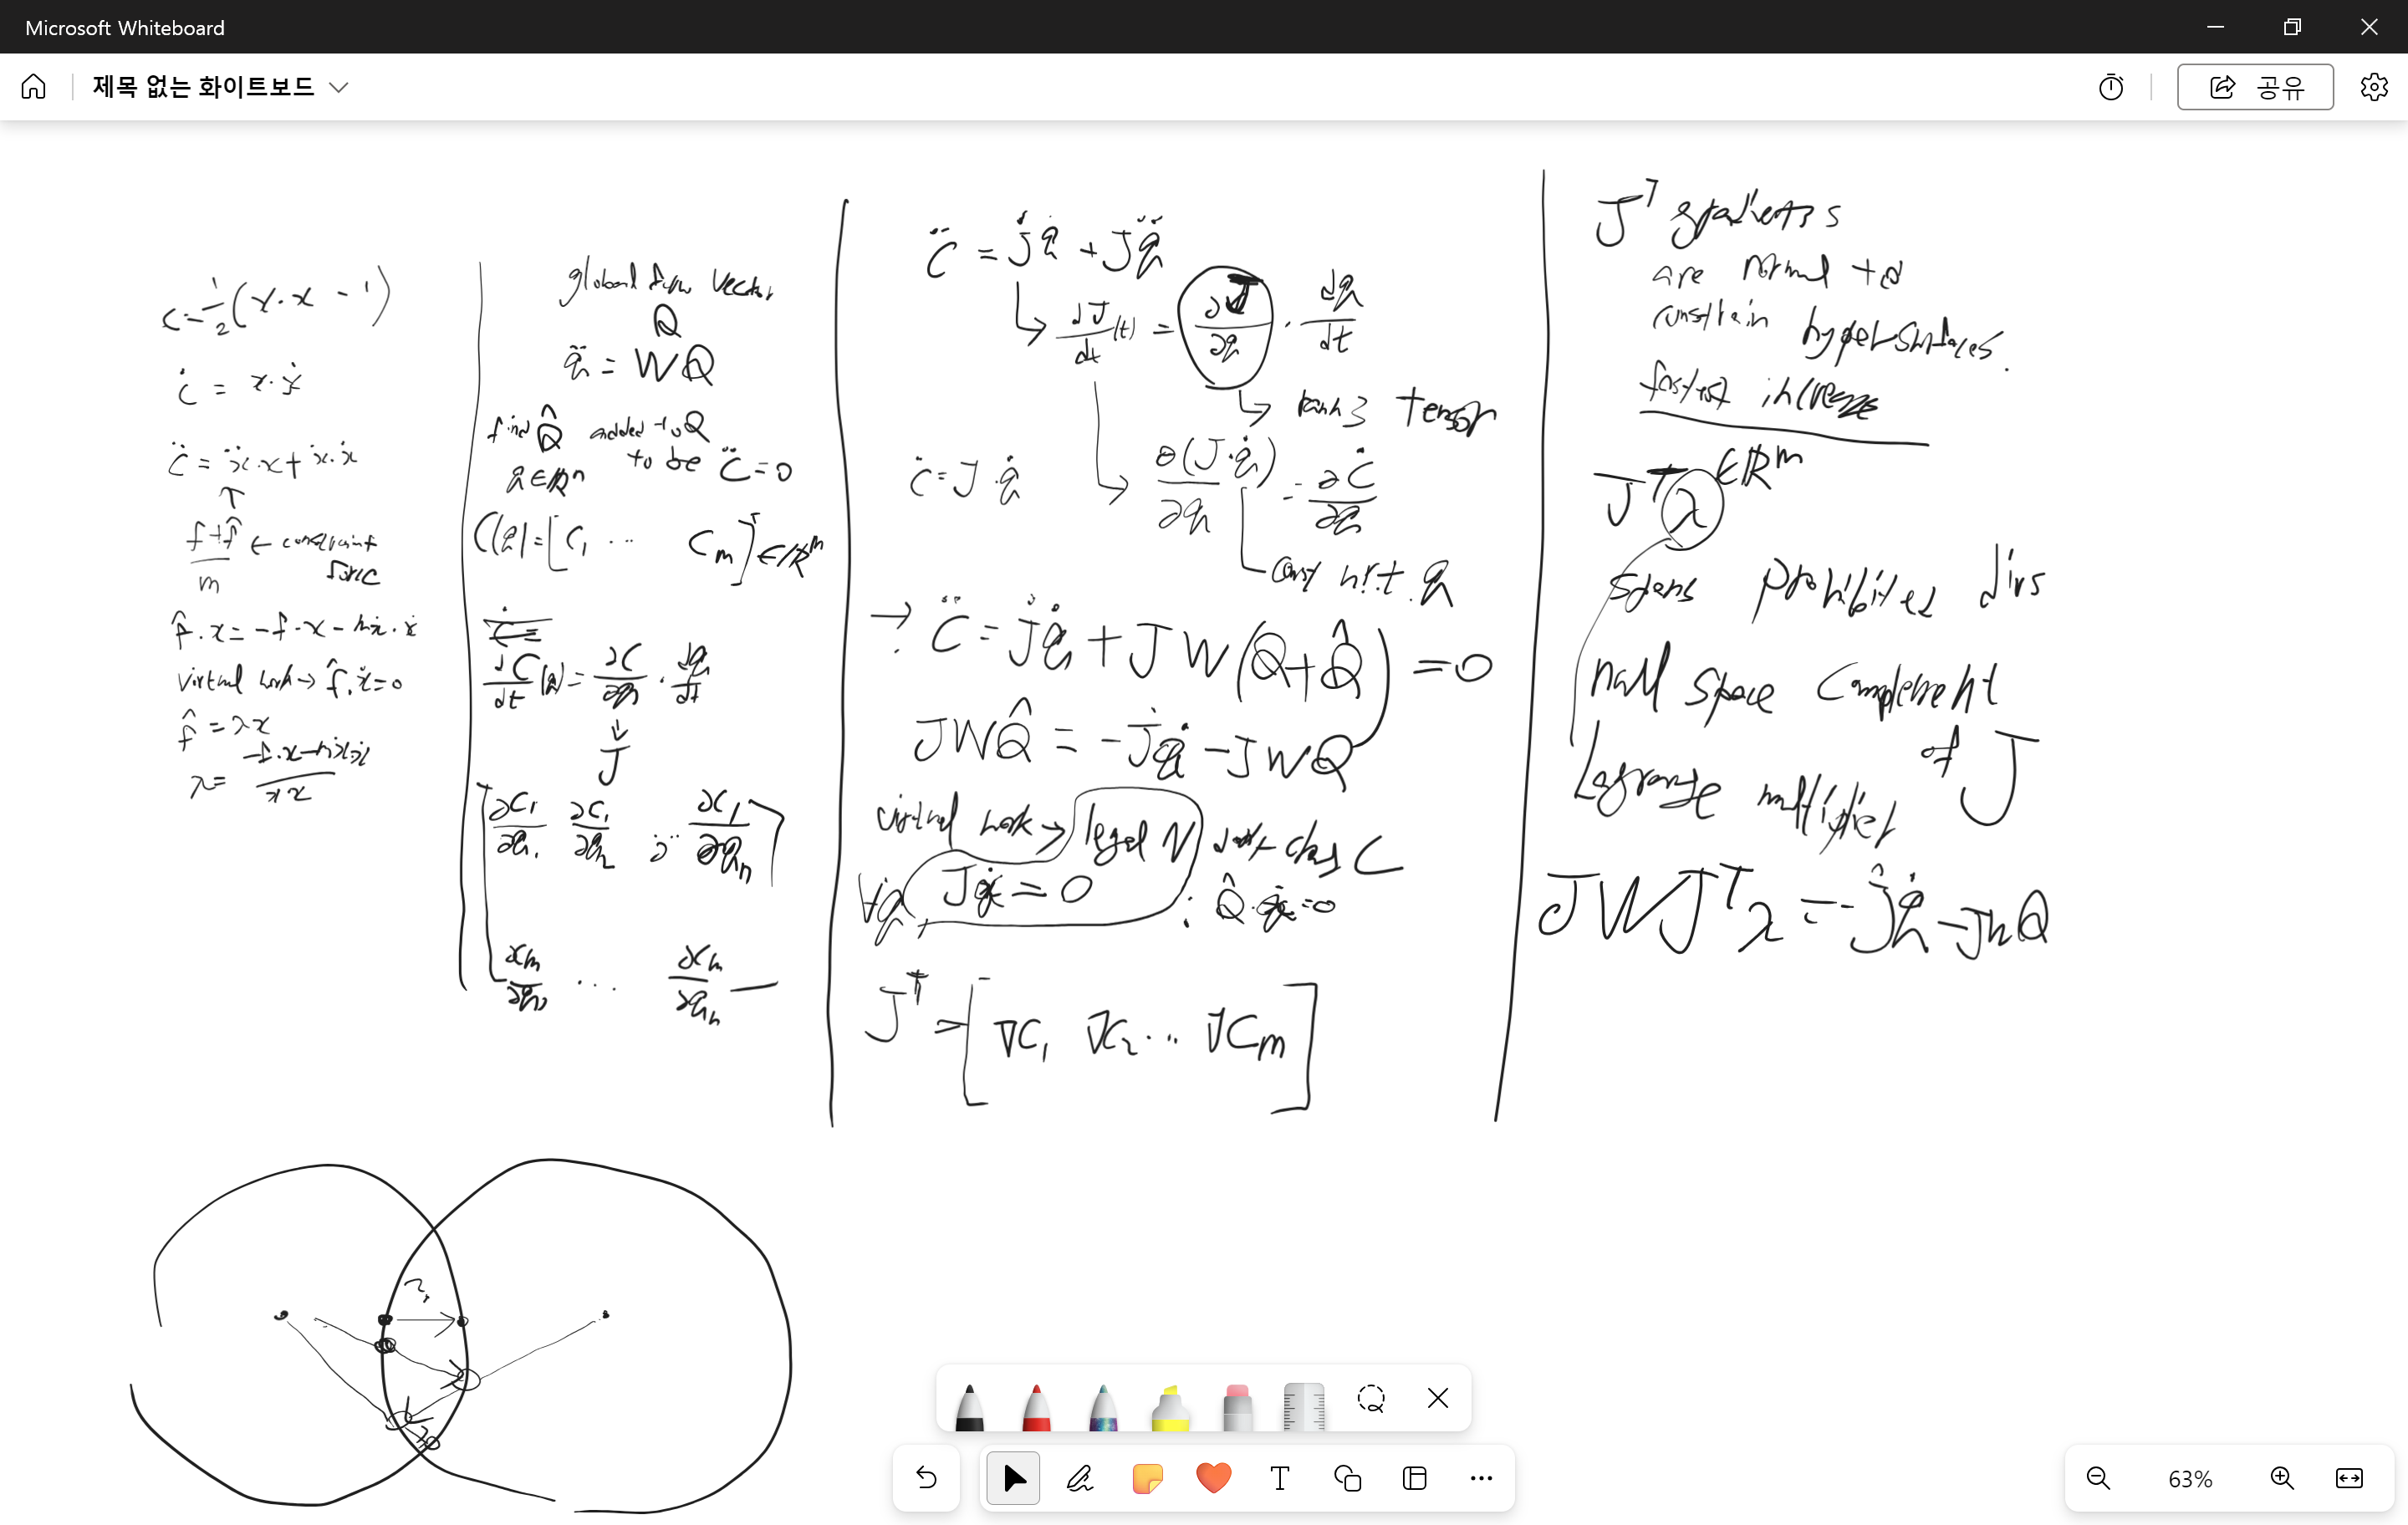 Microsoft Whiteboard
제목 없는 화이트보드
공유
C = 1/2 (x·x - 1)
Ċ = x·ẋ
C̈ = ẍ·x + ẋ·ẋ
f + f̂ / m ← constraint force
f̂·x = -f·x - mẋ·ẋ
virtual work → f̂·ẋ = 0
f̂ = λx
λ = -f·x - mẋ·ẋ / x·x
global force vector
Q
q̈ = WQ
find Q̂ added to Q
to be C̈ = 0
q ∈ ℝⁿ
C(q) = [C₁ ... Cm]ᵀ ∈ ℝᵐ
Ċ =
dC/dt (q) = ∂C/∂q · dq/dt
↓
J
∂C₁/∂q₁ ∂C₁/∂q₂ ... ∂C₁/∂qn
∂Cm/∂q₁ ... ∂Cm/∂qn
C̈ = J̇q̇ + Jq̈
↳ dJ/dt (t) = ∂J/∂q · dq/dt
↳ rank 3 tensor
Ċ = J·q̇
↳ ∂(J·q̇)/∂q = ∂Ċ/∂q
const w.r.t. q
→ C̈ = J̇q̇ + JW(Q + Q̂) = 0
JWQ̂ = -J̇q̇ - JWQ
virtual work → legal
C
∀q̇, Jẋ = 0 : Q̂·ẋ = 0
Jᵀ = [∇C₁ ∇C₂ ... ∇Cm]
Jᵀ gradients
are normal to
constrain hypersurfaces.
fastest increase
Jᵀλ ∈ ℝᵐ
spans prohibited dirs
null space complement
of J
Lagrange multiplier
JWJᵀλ = -J̇q̇ - JWQ
T
63%